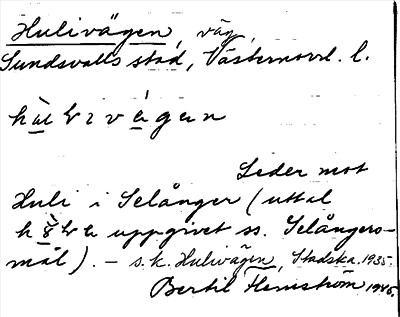 Hulivägen, väg,
Sundsvalls stad, Västernorrl. l.
Leder mot
Huli i Selånger (uttal
uppgivet ss. Selångers-
mål). – s.k. Hulivägen, Stadska. 1935.
Bertil Flemström 1945.